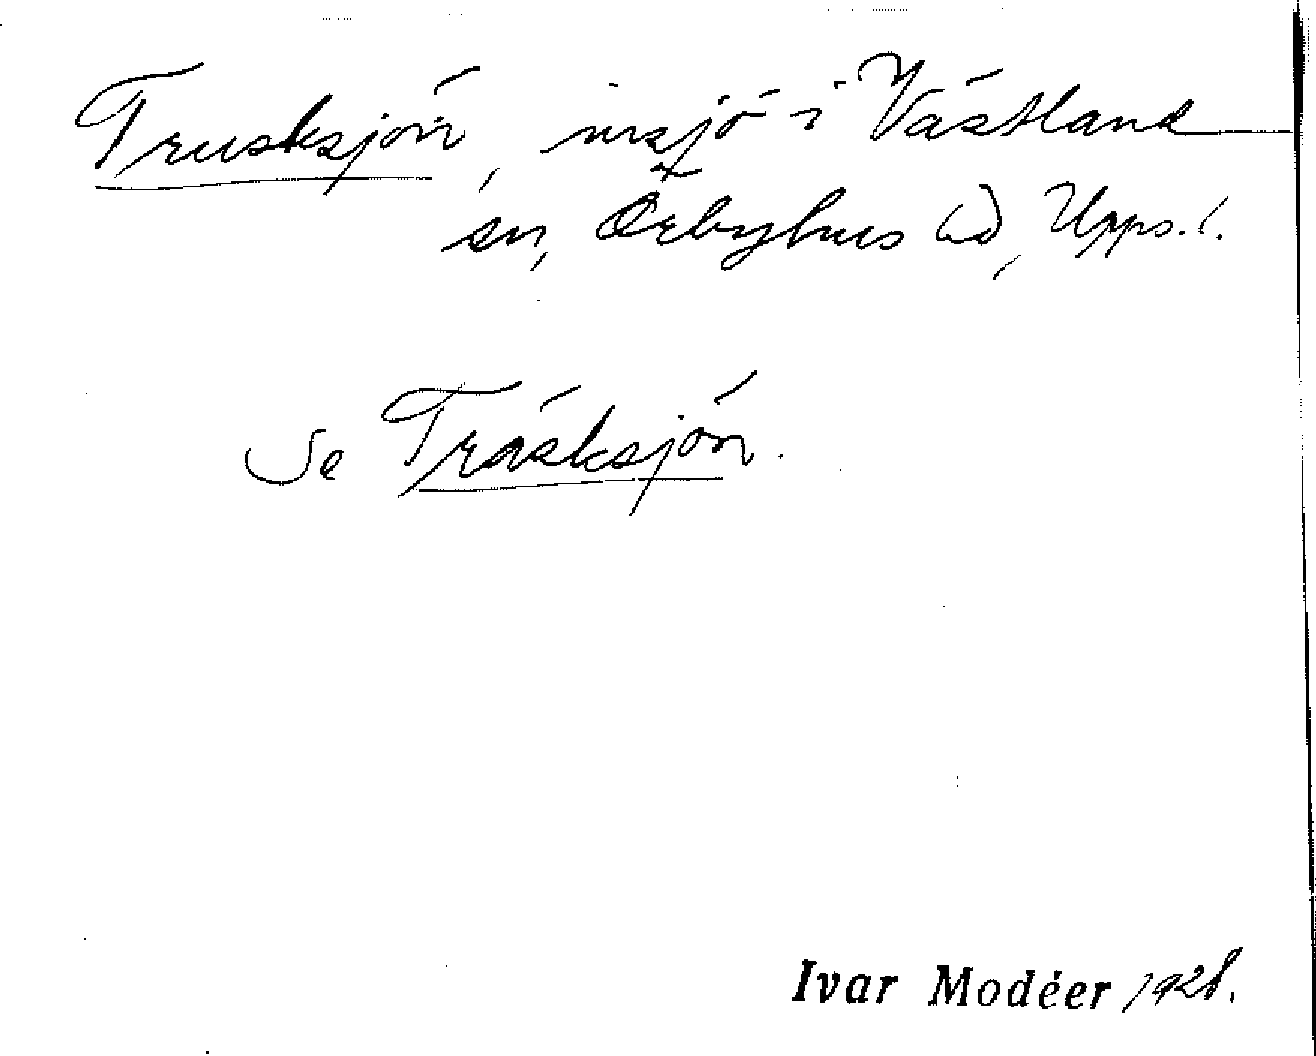 Trusksjön, insjö i Västland
sn, Örbyhus hd, Upps. l.
Se Träsksjön.
Ivar Modéer 1928.